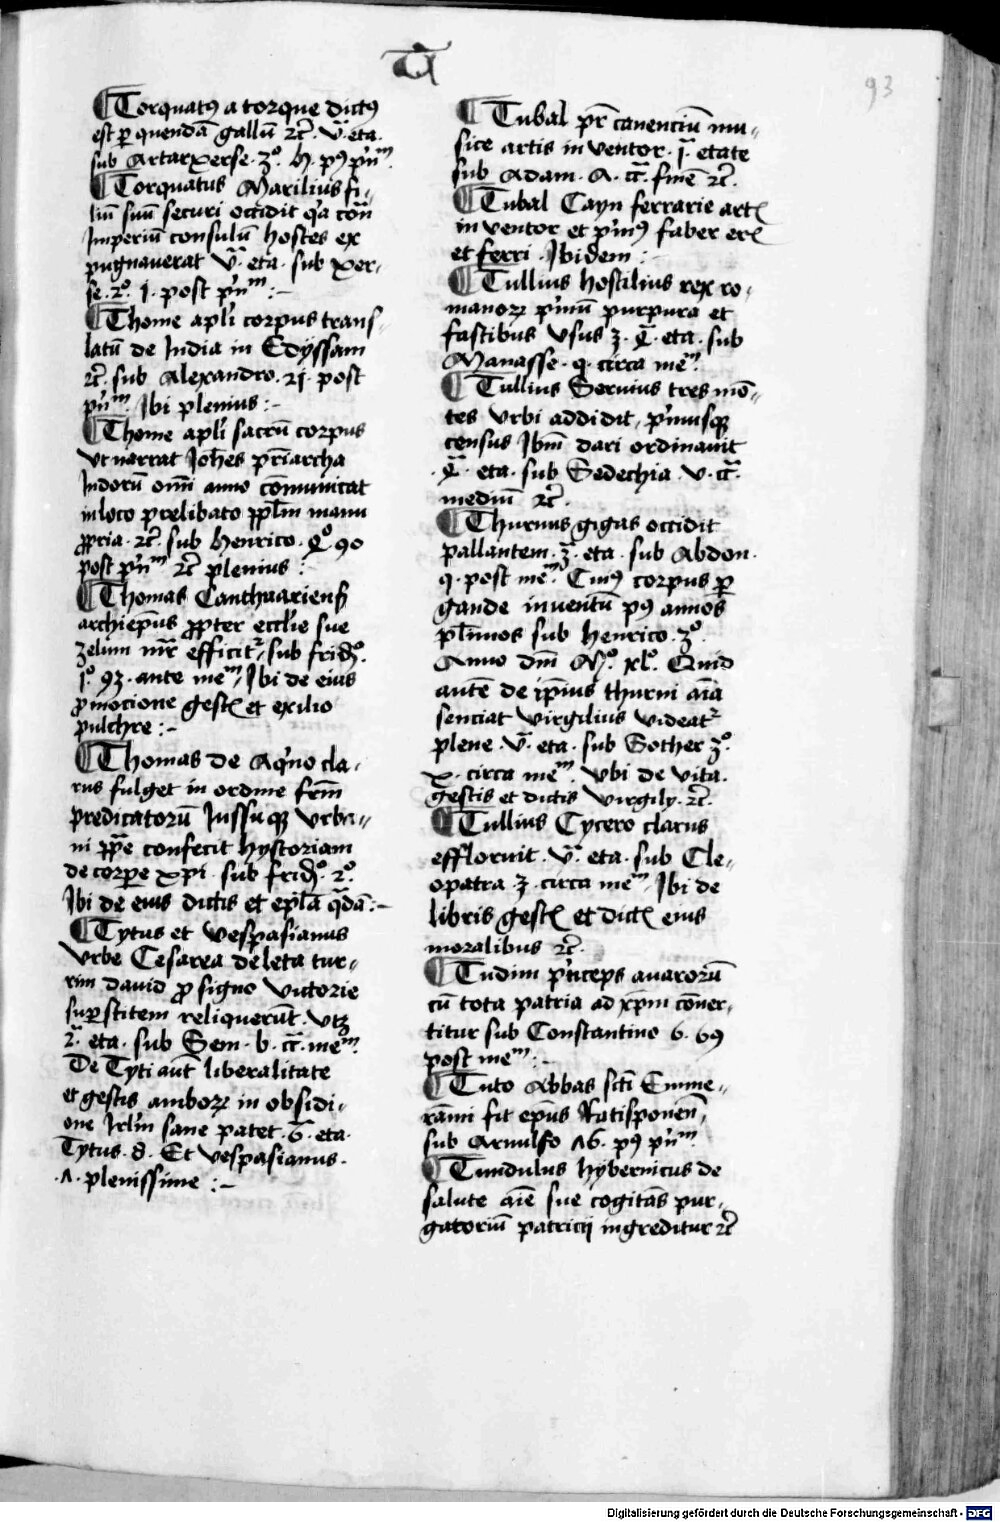 93
¶ Torquatꝰ a torque dictꝰ
est ꝑ quendā gallū ⁊c̄. v̄. eta.
sub Artarxerse. 3º. h. pꝰ pͥnᵐ.
¶ Torquatus Marilius fi-
liū suū securi occidit qͥa con̄
Imperiū consulū hostes ex
pugnauerat v̄. eta. sub xer-
se. 2º. 1. post pͥnᵐ :-
¶ Thome apl'i corpus trans-
latū de India in Edyssam
⁊c̄. sub Alexandro. 21. post
pͥnᵐ. Ibi plenius :-
¶ Thome apl'i sacrū corpus
vt narrat Joh̄es pr̄iarcha
Indorū om̄i anno cōmunicat
in loco prelibato ppl̄m manu
ꝓpria. ⁊c̄. sub Henrico. 4º. 90
post pͥnᵐ ⁊c̄ plenius :
¶ Thomas Canthuarienß
archiep̄us ꝓpter eccl'ie sue
zelum mr̄ efficitꝛ, sub frid̄º.
1º. 93. ante meᵐ, Ibi de eius
ꝓmocione gestꝭ et exilio
pulchre :-
¶ Thomas de Aqͥno cla-
rus fulget in ordine fr̄m
predicatorū Jussuqꝫ vrba-
ni pp̄e confecit hystoriam
de corꝑe xp̄i. sub frid̄º. 2º.
Ibi de eius dictis et epl̄a qͣdā :-
¶ Tytus et vespasianus
vrbe Cesarea deleta tur-
rim dauid ꝓ signo victorie
suꝑstitem reliquerūt. vtꝫ
2ͣ. eta. sub Sem. b. cc̄. meᵐ.
De Tyti aūt liberalitate
et gestis amboꝝ in obsidi-
one Jrl̄m sane patet. 6̄. eta.
Tytus. 8. Et vespasianus.
.ʌ. plenissime :-
¶ Tubal pr̄ canenciū mu-
sice artis inventor. 1ͣ. etate
sub Adam. A. cc̄. fine ⁊c̄.
¶ Tubal Cayn ferrarie artꝭ
inventor et pͥmꝰ faber erꝭ
et ferri. Ibidem :-
¶ Tullius hostilius rex ro-
manoꝝ pͥmū purpura et
fastibus vsus 3. 4ͣ. eta. sub
Manasse. q. circa meᵐ.
¶ Tullius Seruius tres mō-
tes vrbi addidit, pͥmusqꝫ
census Ib̄m dari ordinauit
.4ͣ. eta. sub Sedechia. v. cc̄.
mediū ⁊c̄.
¶ Thurnus gigas occidit
pallantem. 3ͣ. eta. sub Abdon.
q. post meᵐ. Cuiꝰ corpus ꝑ
gande inventū pꝰ annos
pl'imos sub Henrico. 3º.
Anno dn̄i Mº. xlº. Quid
autē de ip̄ius thurni aīa
senciat virgilius videatꝛ
plene. v̄. eta. sub Sother 3º.
x. circa meᵐ. vbi de vita.
gestis et dictis virgilÿ. ⁊c̄.
¶ Tullius Cycero clarus
effloruit. v̄. eta. sub Cle-
opatra. 3. circa meᵐ, Ibi de
libris gestꝭ et dictꝭ eius
moralibus ⁊c̄.
¶ Tudim pͥnceps auarorū
cū tota patria ad xp̄m cōuer-
titur sub Constantino 6. 69
post meᵐ :-
¶ Tuto Abbas scti Emme-
rāmi fit ep̄us Ratisponen̄,
sub Arnulfo ʌ6. pꝰ pͥnᵐ.
¶ Tundulus hybernicus de
salute aīe sue cogitās pur-
gatoriū patricij ingreditur ⁊c̄
Digitalisierung gefördert durch die Deutsche Forschungsgemeinschaft - DFG